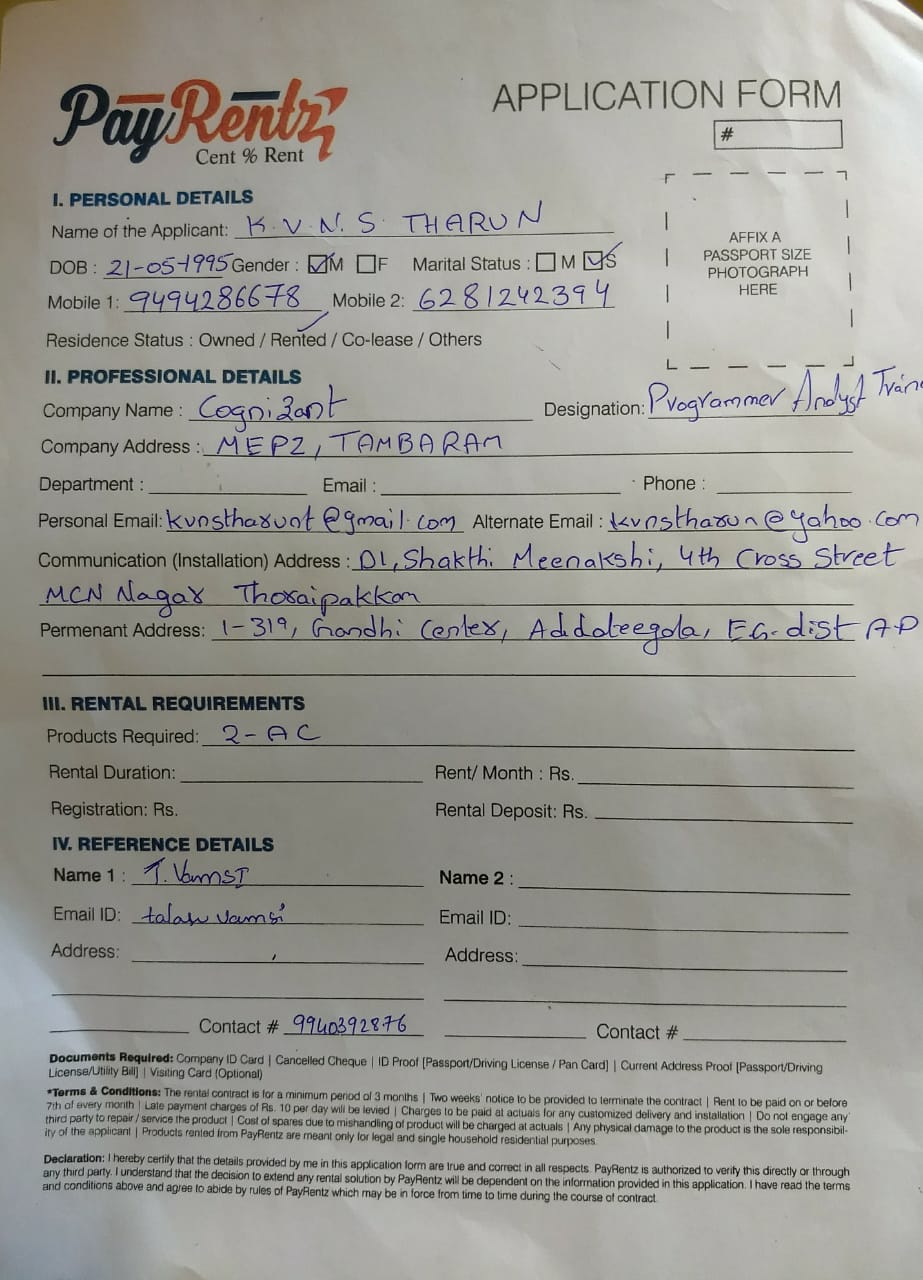 PayRentz
Cent % Rent
APPLICATION FORM
#
I. PERSONAL DETAILS
AFFIX A
PASSPORT SIZE
PHOTOGRAPH
HERE
Name of the Applicant: K.V.N.S. THARUN
DOB : 21-05-1995 Gender : M F Marital Status : M S
Mobile 1: 9494286678 Mobile 2: 6281242394
Residence Status : Owned / Rented / Co-lease / Others
II. PROFESSIONAL DETAILS
Company Name : Cognizant Designation: Programmer Analyst
Company Address : MEPZ, TAMBARAM
Department : Email : Phone :
Personal Email: kvnstharunt@gmail.com Alternate Email : kvnstharun@yahoo.com
Communication (Installation) Address : D1, Shakthi Meenakshi, 4th Cross Street
MCN Nagar Thoraipakkam
Permenant Address: 1-319, Gandhi Center, Addateegola, EG-dist AP
III. RENTAL REQUIREMENTS
Products Required: 2-AC
Rental Duration: Rent/ Month : Rs.
Registration: Rs. Rental Deposit: Rs.
IV. REFERENCE DETAILS
Name 1 : T. VamsI Name 2 :
Email ID: vamsi Email ID:
Address: Address:
Contact # 9940392876 Contact #
Documents Required: Company ID Card | Cancelled Cheque | ID Proof [Passport/Driving License / Pan Card] | Current Address Proof [Passport/Driving
License/Utility Bill] | Visiting Card (Optional)
*Terms & Conditions: The rental contract is for a minimum period of 3 months | Two weeks' notice to be provided to terminate the contract | Rent to be paid on or before
7th of every month | Late payment charges of Rs. 10 per day will be levied | Charges to be paid at actuals for any customized delivery and installation | Do not engage any
third party to repair / service the product | Cost of spares due to mishandling of product will be charged at actuals | Any physical damage to the product is the sole responsibil-
ity of the applicant | Products rented from PayRentz are meant only for legal and single household residential purposes.
Declaration: I hereby certify that the details provided by me in this application form are true and correct in all respects. PayRentz is authorized to verify this directly or through
any third party. I understand that the decision to extend any rental solution by PayRentz will be dependent on the information provided in this application. I have read the terms
and conditions above and agree to abide by rules of PayRentz which may be in force from time to time during the course of contract.